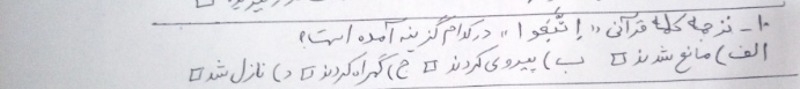 ۱۰- ترجمه کلمه قرآنی «اِتَّبَعُوا» در کدام گزینه آمده است؟
الف) مانع شدند □ ب) پیروی کردند □ ج) گمراه کردند □ د) نازل شد □